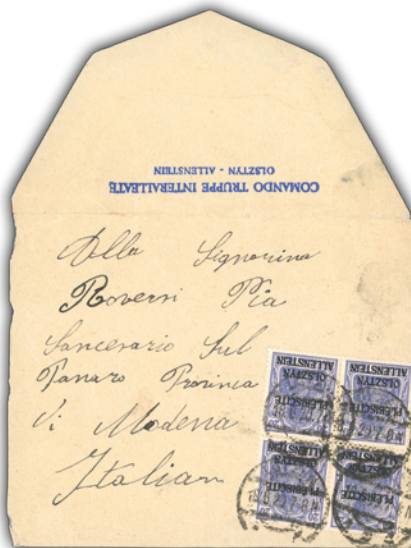 COMANDO TRUPPE INTERALLEATE
OLSZTYN - ALLENSTEIN
Alla Signorina
Roversi Pia
Sancesario Sul
Panaro Provinca
di Modena
Italian
PLÉBISCITE
OLSZTYN
ALLENSTEIN
PLÉBISCITE
OLSZTYN
ALLENSTEIN
PLÉBISCITE
OLSZTYN
ALLENSTEIN
PLÉBISCITE
OLSZTYN
ALLENSTEIN